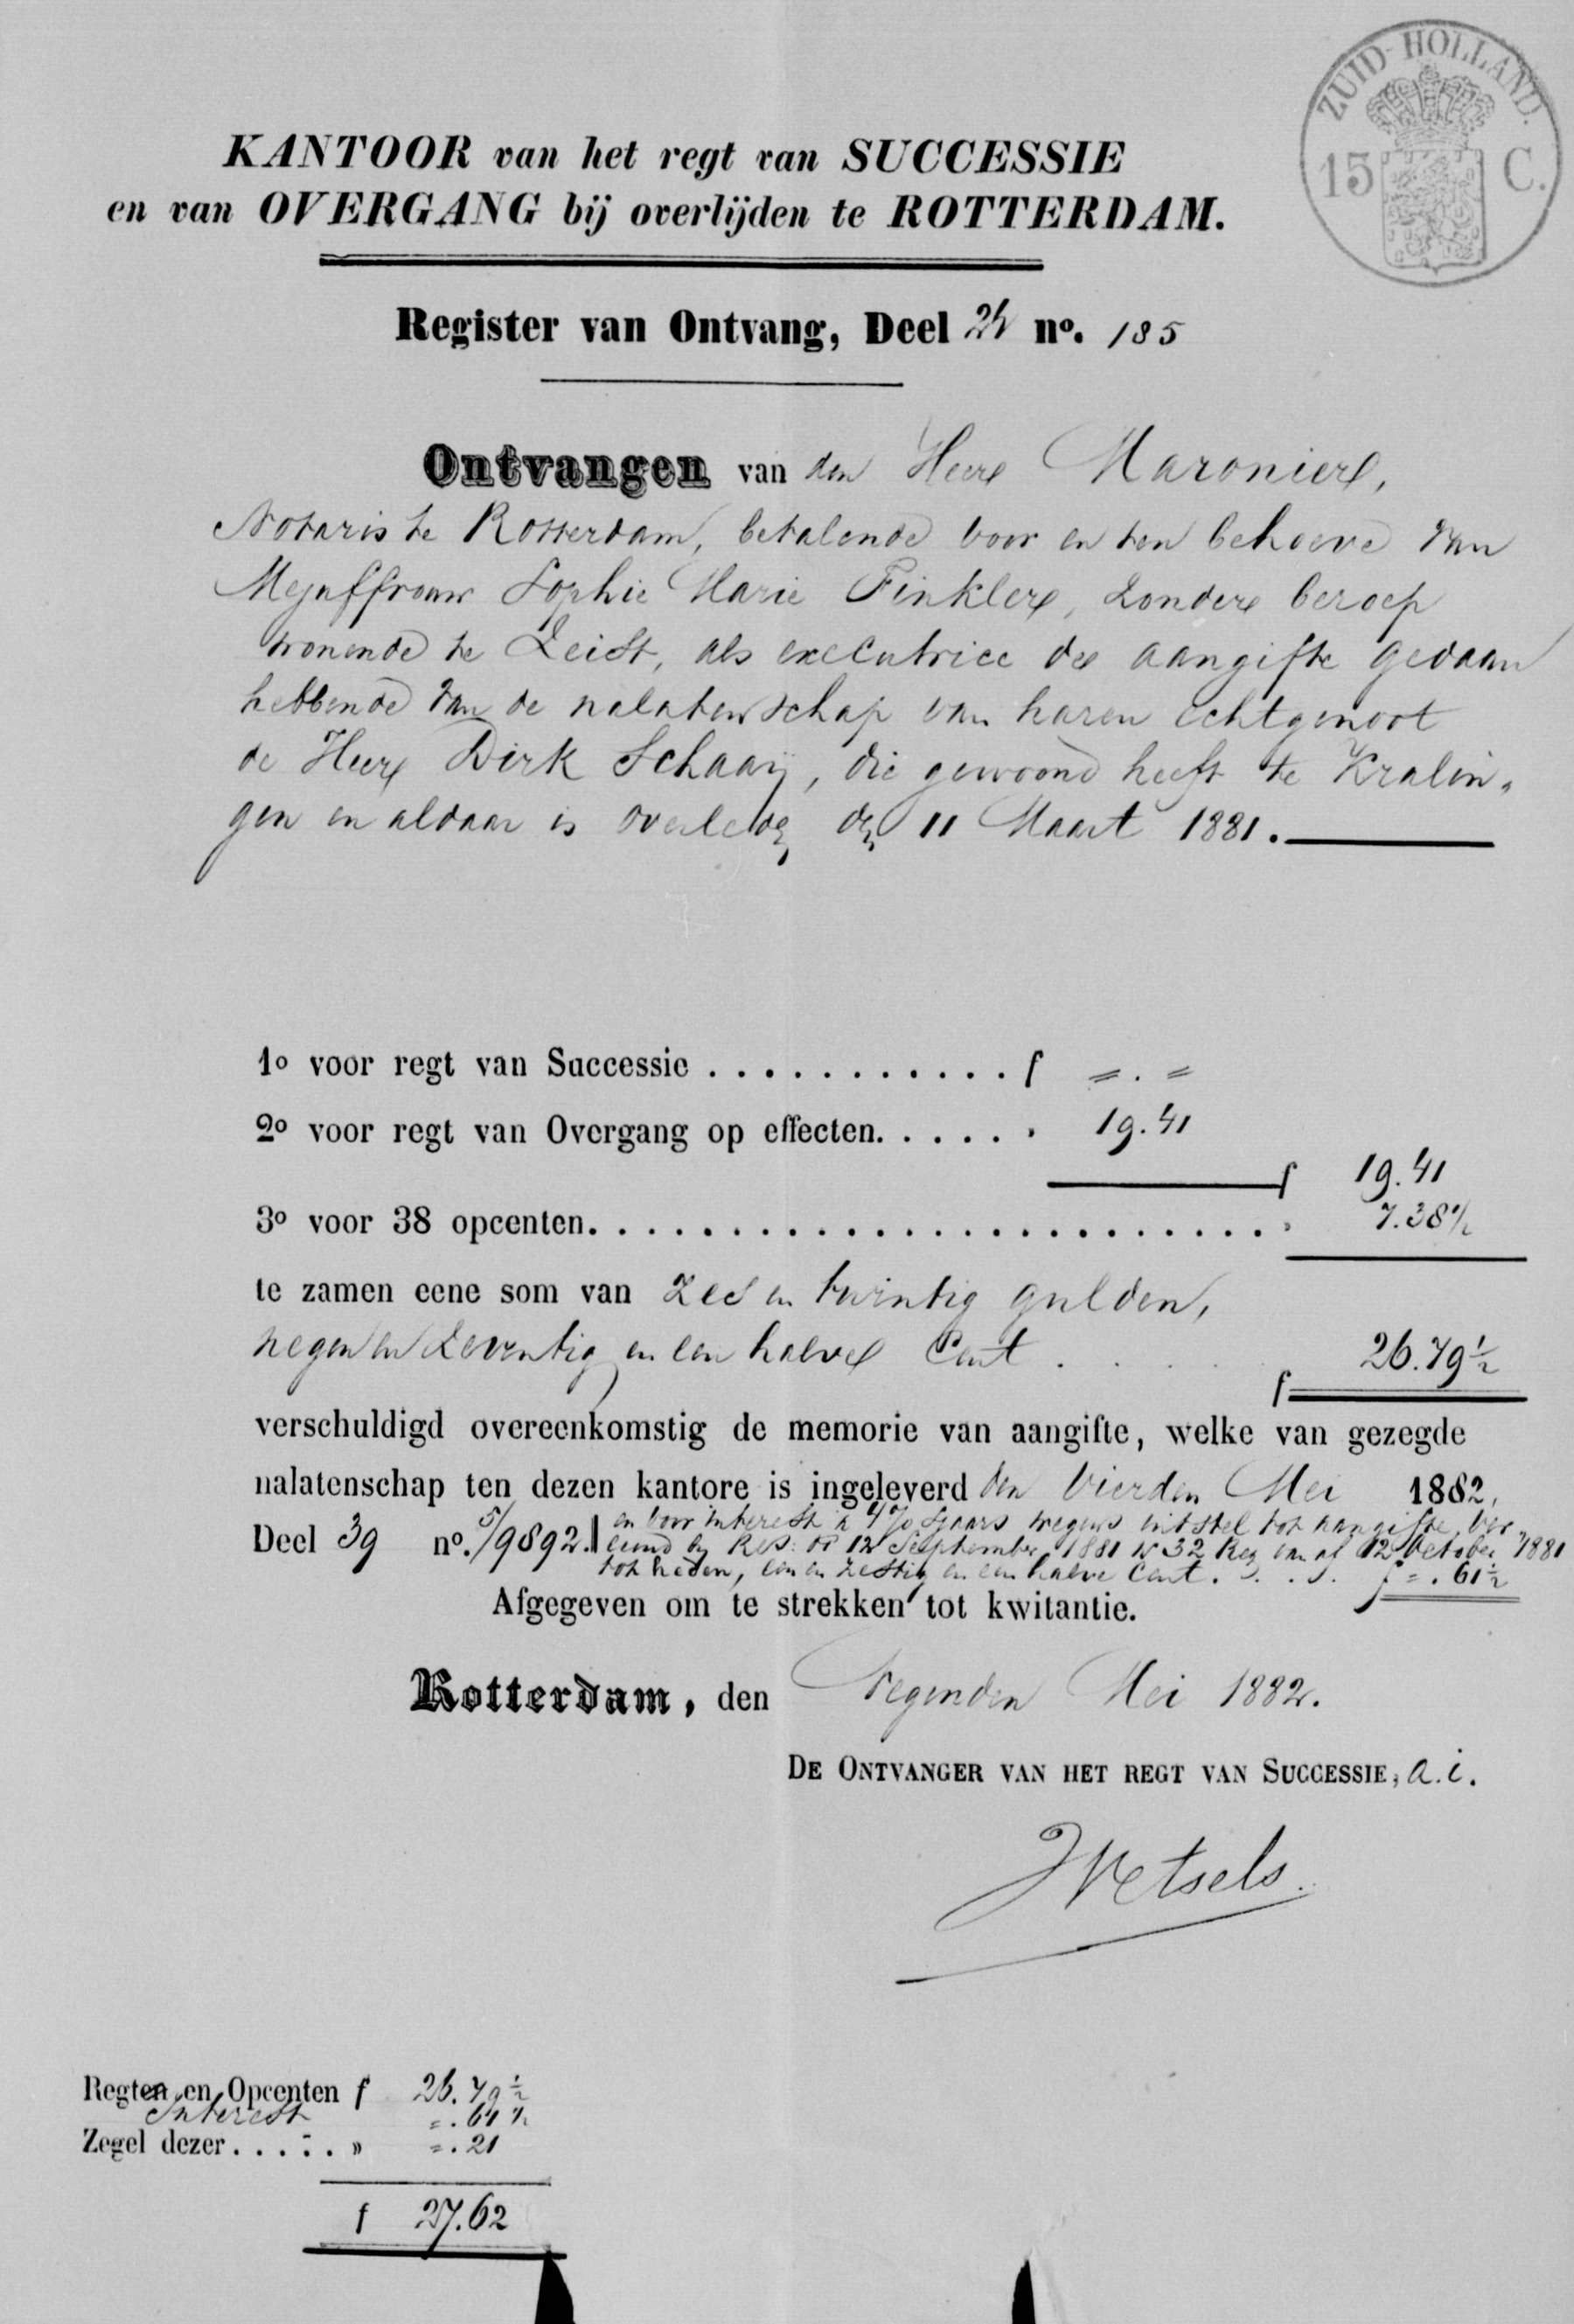 ZUID-HOLLAND.
15 C.
KANTOOR van het regt van SUCCESSIE
en van OVERGANG bij overlijden te ROTTERDAM.
Register van Ontvang, Deel no. 185
Ontvangen van den Heer Maronier,
Notaris te Rotterdam, betalende voor en ten behoeve van
Mejuffrouw Sophie Marie Finkler, zonder beroep
wonende te Zeist, als executrice de aangifte gedaan
hebbende van de nalatenschap van haren echtgenoot
de Heer Dirk Schaaij, die gewoond heeft te Kralin-
gen en aldaar is overleden den 11 Maart 1881.
1o voor regt van Successie . . . . . . . . . . . f =.=
2o voor regt van Overgang op effecten. . . . . . 19.41
f 19.41
3o voor 38 opcenten. . . . . . . . . . . . . . . . . . . . . . . . 7.38½
te zamen eene som van zes en twintig gulden,
negen en zeventig en een halve Cent . . . .
f 26.79½
verschuldigd overeenkomstig de memorie van aangifte, welke van gezegde
nalatenschap ten dezen kantore is ingeleverd den vierden Mei 1882,
Deel 39 no. 5/9892.
en voor interest à 4% 'sjaars wegens uitstel tot aangifte, ver-
leend bij Res: van 12 September 1881 No 32 Reg van af 12 October 1881
tot heden, een en zestig en een halve Cent. . . . f =.61½
Afgegeven om te strekken tot kwitantie.
Rotterdam, den Negenden Mei 1882.
DE ONTVANGER VAN HET REGT VAN SUCCESSIE, a.i.
Wetsels
Regten en Opcenten f 26.79½
Interest =.61½
Zegel dezer . . . . . » =.21
f 27.62